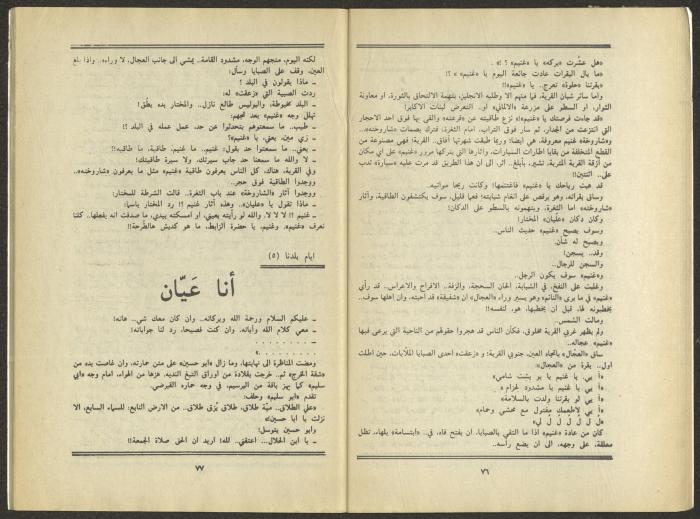 «هل عشّرت «بركه» يا «غنيم» ؟ !» .
«ما بال البقرات عادت جائعة اليوم يا «غنيم» » ؟!
«بقرتنا «حلوة» تعرج.. يا «غنيم»!!
واما سائر شبان القرية، فيا منهم الا وطلبه الانجليز، بتهمة الالتحاق بالثورة، او معاونة
الثوار، او السطو على مزرعة «الالماني» او.. التعرض لبنات الاكابر!
«قد جاءت فرصتك يا «غنيم»!» نزع طاقيته عن «قرعته» والقى بها فوق احد الاحجار
التي انتزعت من الجدار، ثم سار فوق التراب، امام الثغرة، فترك بصمات «شاروخته»..
و«شاروخة» غنيم معروفة، هي ايضا! وربما طبقت شهرتها آفاق.. القرية: فهي مصنوعة من
القطع المتخلفة من بقايا اطارات السيارات، وآثارها التي يتركها مرور «غنيم» على اي مكان
من أزقة القرية المتربة، تشير، بأبلغ.. اثر، الى ان هذا الطريق قد مرت عليه «سيارة» تدب
على.. اثنتين!!
قد هبت رياحك يا «غنيم» فاغتنمها! وكانت ريحا مواتيه.
وساق بقراته، وهو يرقص على انغام شبابته! فعما قليل، سوف يكتشفون الطاقية، وآثار
«شاروخته» اما الثغرة، ويتهمونه بالسطو على الدكان!
وكان دكان «عليّان» المختار!
وسوف يصبح «غنيم» حديث الناس.
ويصبح له شأن.
وقد.. يسجن!
والسجن للرجال..
و«غنيم» سوف يكون الرجل..
وغلبت على النفخ، في الشبابة، الحان السحجة، والزفة.. الافراح والاعراس.. قد رأي
«غنيم» في ما يرى «النائم» وهو يسير وراء «العجال» ان «شفيقة» قد احبته، وان اهلها سوف..
يخطبونه لها، قبل ان يخطبها، هو، لنفسه!!
ومالت الشمس..
ولم يظهر غربي القرية مخلوق، فكأن الناس قد هجروا حقولهم من الناحية التي يرعى فيها
«غنيم» عجاله..
ساق «العجّال» باتجاه العين، جنوبي القرية: و «زعقت» احدى الصبايا الملّايات، حين اطلت
اول.. بقرة من «العجال»:
«أ بي.. يا غنيم يا بو بشت شامي»
«أ بي يا غنيم يا مشدود لحزام »
«أ بي لو بقرتنا ولدت بالسلامة»
«أ بي لاطعمك مفتول مع محشي وحمام»
«ل ل ل ل ل ل لي»
كان من عادة «غنيم» اذا ما التقي بالصبايا، ان يفتح فاه، في.. «ابتسامة» بلهاء، تظل
معلقة، على وجهه، الى ان يضع رأسه..
٧٦
لكنه اليوم، متجهم الوجه، مشدود القامة.. يمشي الى جانب العجال، لا وراءه.. واذا بلغ
العين، وقف على الصبايا وسأل:
ـ ماذا يقولون في البلد ؟
ردت الصبية التي «زعقت» له:
ـ البلد مخبوطة، والبوليس طالع نازل.. والمختار بده يطُق!
تهلل وجه «غنيم» بعد تجهم:
ـ طيب.. ما سمعتوهم يتحدثوا عن حد، عمل عمله في البلد ؟!
ـ زي مين، يعني، يا «غنيم»؟
ـ يعني.. ما سمعتوا حد بقول: غنيم.. ما غنيم، طاقية، ما طاقيه!!
ـ لا والله ما سمعنا حد جاب سيرتك، ولا سيرة طاقيتك!
وفي القرية، هناك، كل الناس يعرفون طاقية «غنيم» مثل ما يعرفون «شاروخته»..
ووجدوا الطاقية فوق حجر..
ووجدوا آثار «الشاروخة» عند باب الثغرة.. قالت الشرطة للمختار:
ـ ماذا تقول يا «عليان».. وهذه آثار غنيم ؟! رد المختار باسما:
ـ غنيم !! لا لا لا، والله لو رأيته بعيني، او امسكته بيدي، ما صدقت انه بفعلها.. كلنا
نعرف «غنيم»، وغنيم، يا حضرة الزابط، ما هو كديش هالطّرحة!!
ايام بلدنا (٥)
أنا عَيّان
ـ عليكم السلام ورحمة الله وبركاته.. وان كان معك شي.. هاته!
ـ معي كلام الله وآياته، وان كنت فصيحا، رد لنا جواباته!
ـ . . . . . . . . .
ـ . . . . . . . . . »
ومضت المناظرة الى نهايتها، وما زال «ابو حسين» على متن حمارته، وان غاصت يده من
«شقة الخرج» ثم.. خرجت بقلادة من اوراق التبغ الندية، هزها من الهواء، امام وجه «ابي
سليم» كما يهز باقة من البرسيم، في وجه حماره القبرصي.
تقدم «ابو سليم» وحلف:
«علي الطلاق.. ميّة طلاق، طلاق بُزق طلاق.. من الارض التابع: للسماء السابع، الا
نزلت يا ابا حسين!»
وابو حسين يتوسل!
ـ يا ابن الحلال... اعتقني.. لله! اريد ان الحق صلاة الجمعة!!
٧٧